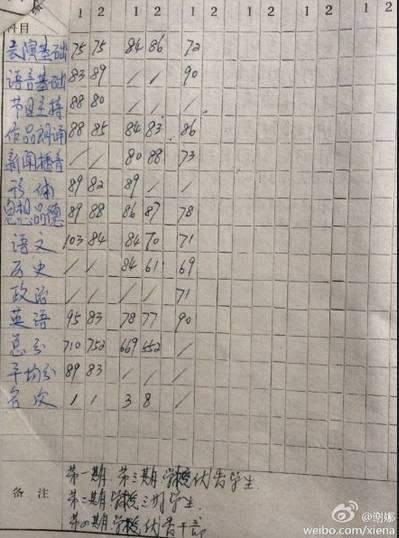 1 2 1 2 1 2 1 2 1 2 1 2
科目
表演基础 75 75 84 86 72
语音基础 83 89 / / 90
节目主持 88 80
作品朗诵 88 85 84 83 86
新闻播音 / / 80 88 73
形体 89 82 89 / /
思想品德 89 88 86 87 78
语文 103 84 84 70 71
历史 / / 84 61 69
政治 / / / / 71
英语 95 83 78 77 90
总分 710 752 669 552 /
平均分 89 83 / / /
名次 1 1 3 8 /
备注
第一期 第三期 学校优秀学生.
第二期 学校三好学生.
第四期 学校优秀干部
@谢娜
weibo.com/xiena